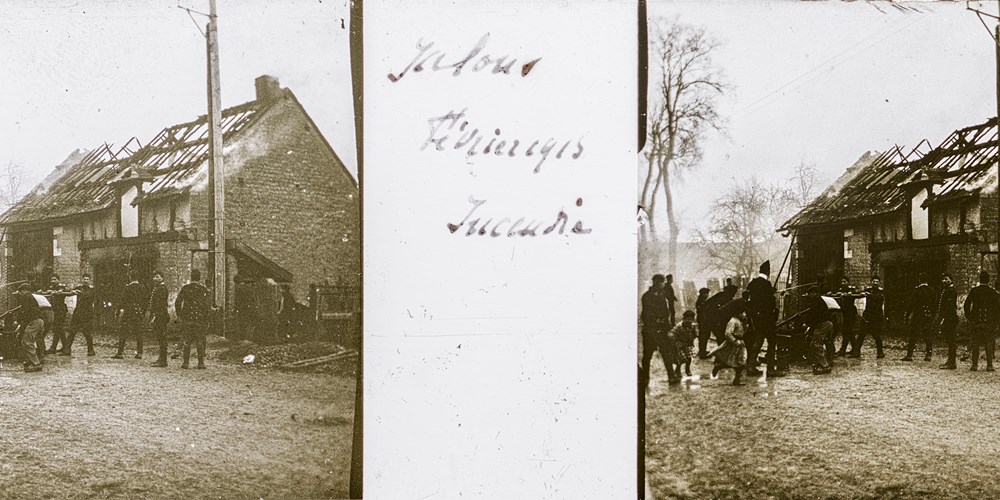 Jalons
Février 1915
Incendie